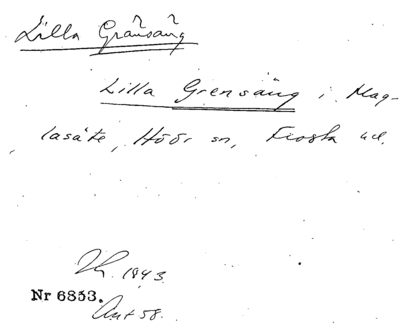 Lilla Gränsäng
Lilla Grensäng i Mag-
lasäte, Höör sn, Frosta hd.
Th. 1843.
Nr 6853.
Ant 58.